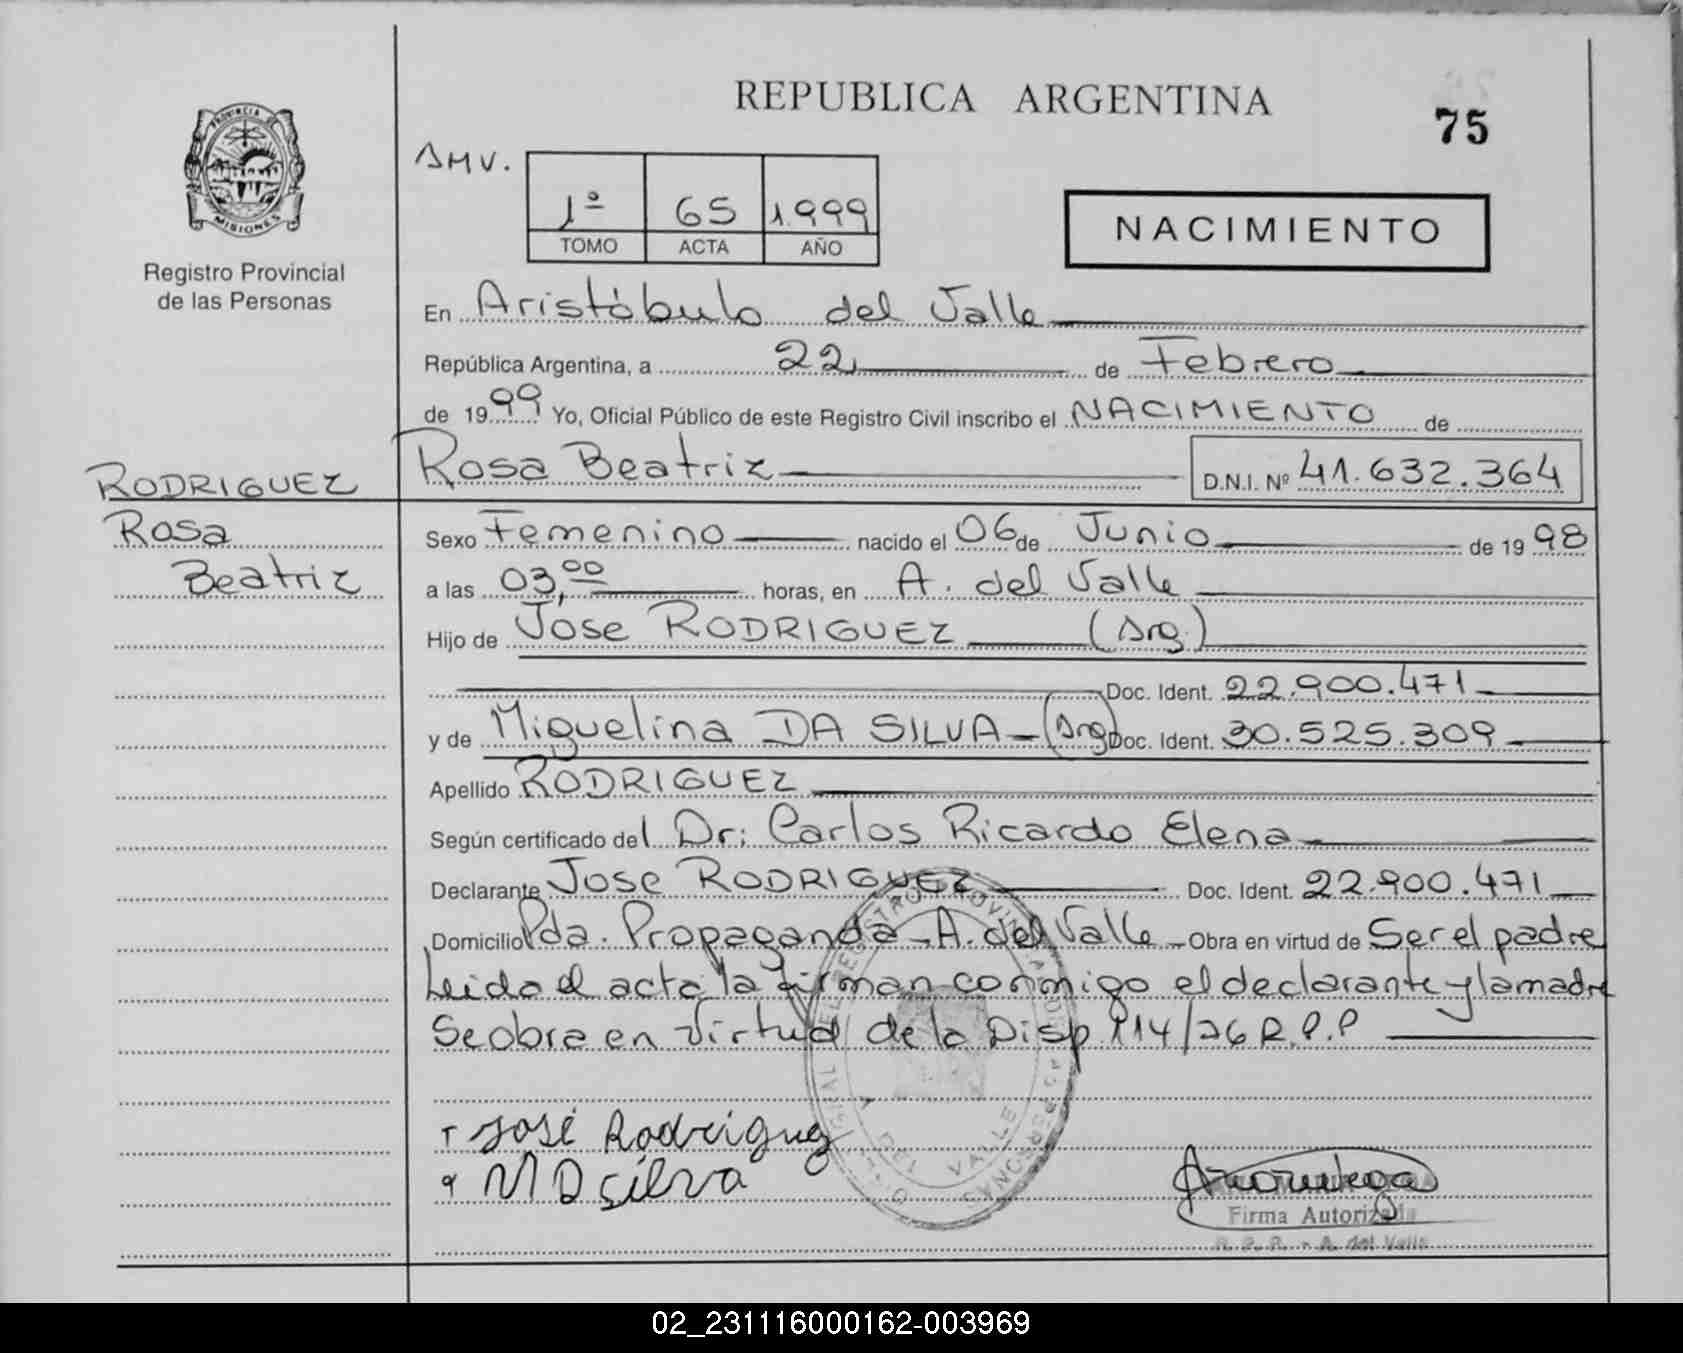 REPUBLICA ARGENTINA
75
PROVINCIA DE
MISIONES
Registro Provincial
de las Personas
AMV.
1º 65 1.999
TOMO ACTA AÑO
NACIMIENTO
En Aristóbulo del Valle
República Argentina, a 22 de Febrero
de 1999 Yo, Oficial Público de este Registro Civil inscribo el NACIMIENTO de
Rosa Beatriz D.N.I. Nº 41.632.364
RODRIGUEZ
Rosa
Beatriz
Sexo Femenino nacido el 06 de Junio de 1998
a las 03,00 horas, en A. del Valle
Hijo de Jose RODRIGUEZ (Arg.)
Doc. Ident. 22.900.471
y de Miguelina DA SILVA (Arg) Doc. Ident. 30.525.309
Apellido RODRIGUEZ
Según certificado del Dr: Carlos Ricardo Elena
Declarante Jose RODRIGUEZ Doc. Ident. 22.900.471
Domicilio Pda. Propaganda - A. del Valle Obra en virtud de Ser el padre
Leido el acta la firman conmigo el declarante y la madre
Se obra en virtud de la Disp 114/76 R.P.P
José Rodriguez
M D silva
DEL VALLE
Firma Autorizada
R. P. P. - A. del Valle
02_231116000162-003969